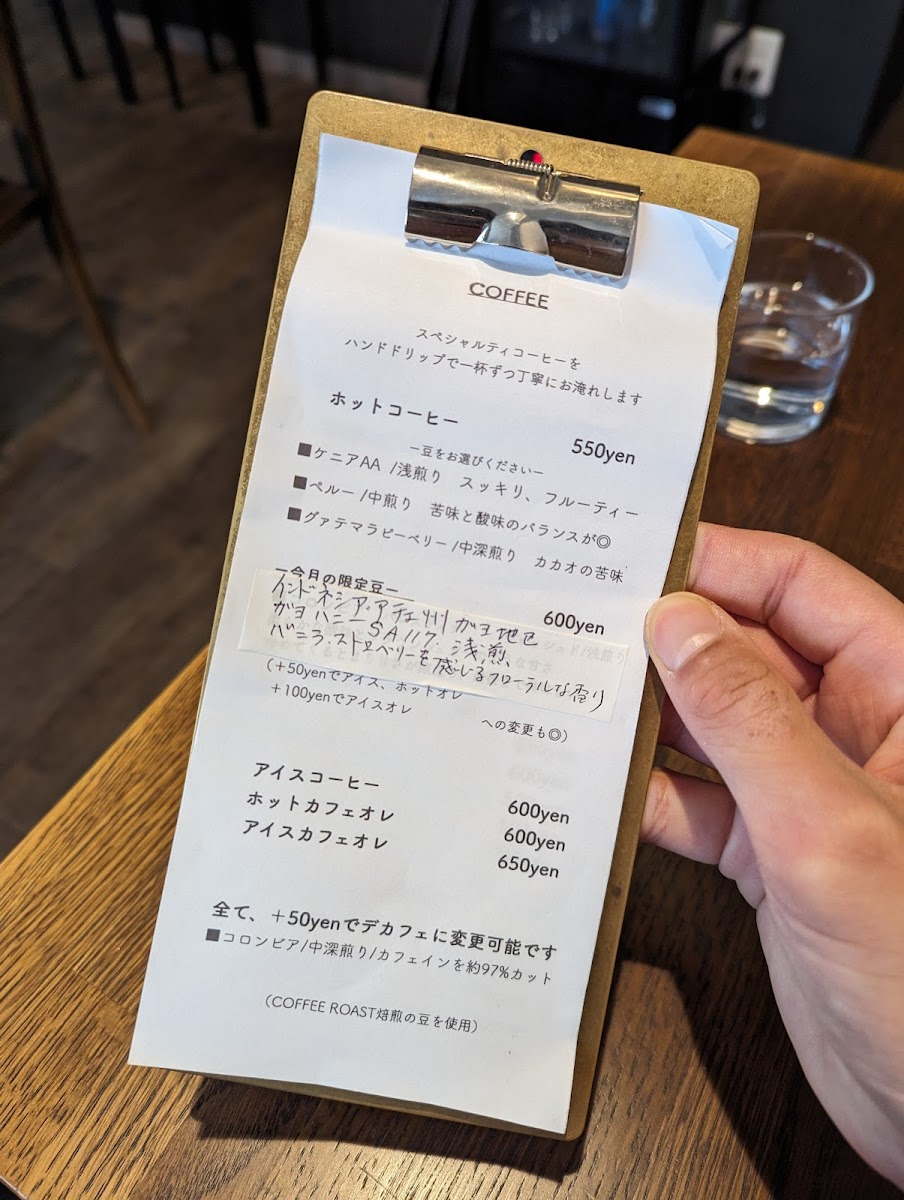 COFFEE
スペシャルティコーヒーを
ハンドドリップで一杯ずつ丁寧にお淹れします
ホットコーヒー 550yen
ー豆をお選びくださいー
■ケニアAA /浅煎り スッキリ、フルーティー
■ペルー /中煎り 苦味と酸味のバランスが◎
■グァテマラピーベリー /中深煎り カカオの苦味
ー今月の限定豆ー 600yen
インドネシア・アチェ州 ガヨ地区
ガヨ ハニー SA117. 浅煎、
バニラ.ストロベリーを感じるフローラルな香り
(＋50yenでアイス、ホットオレ
＋100yenでアイスオレ
への変更も◎)
アイスコーヒー 600yen
ホットカフェオレ 600yen
アイスカフェオレ 650yen
全て、＋50yenでデカフェに変更可能です
■コロンビア/中深煎り/カフェインを約97%カット
(COFFEE ROAST焙煎の豆を使用)